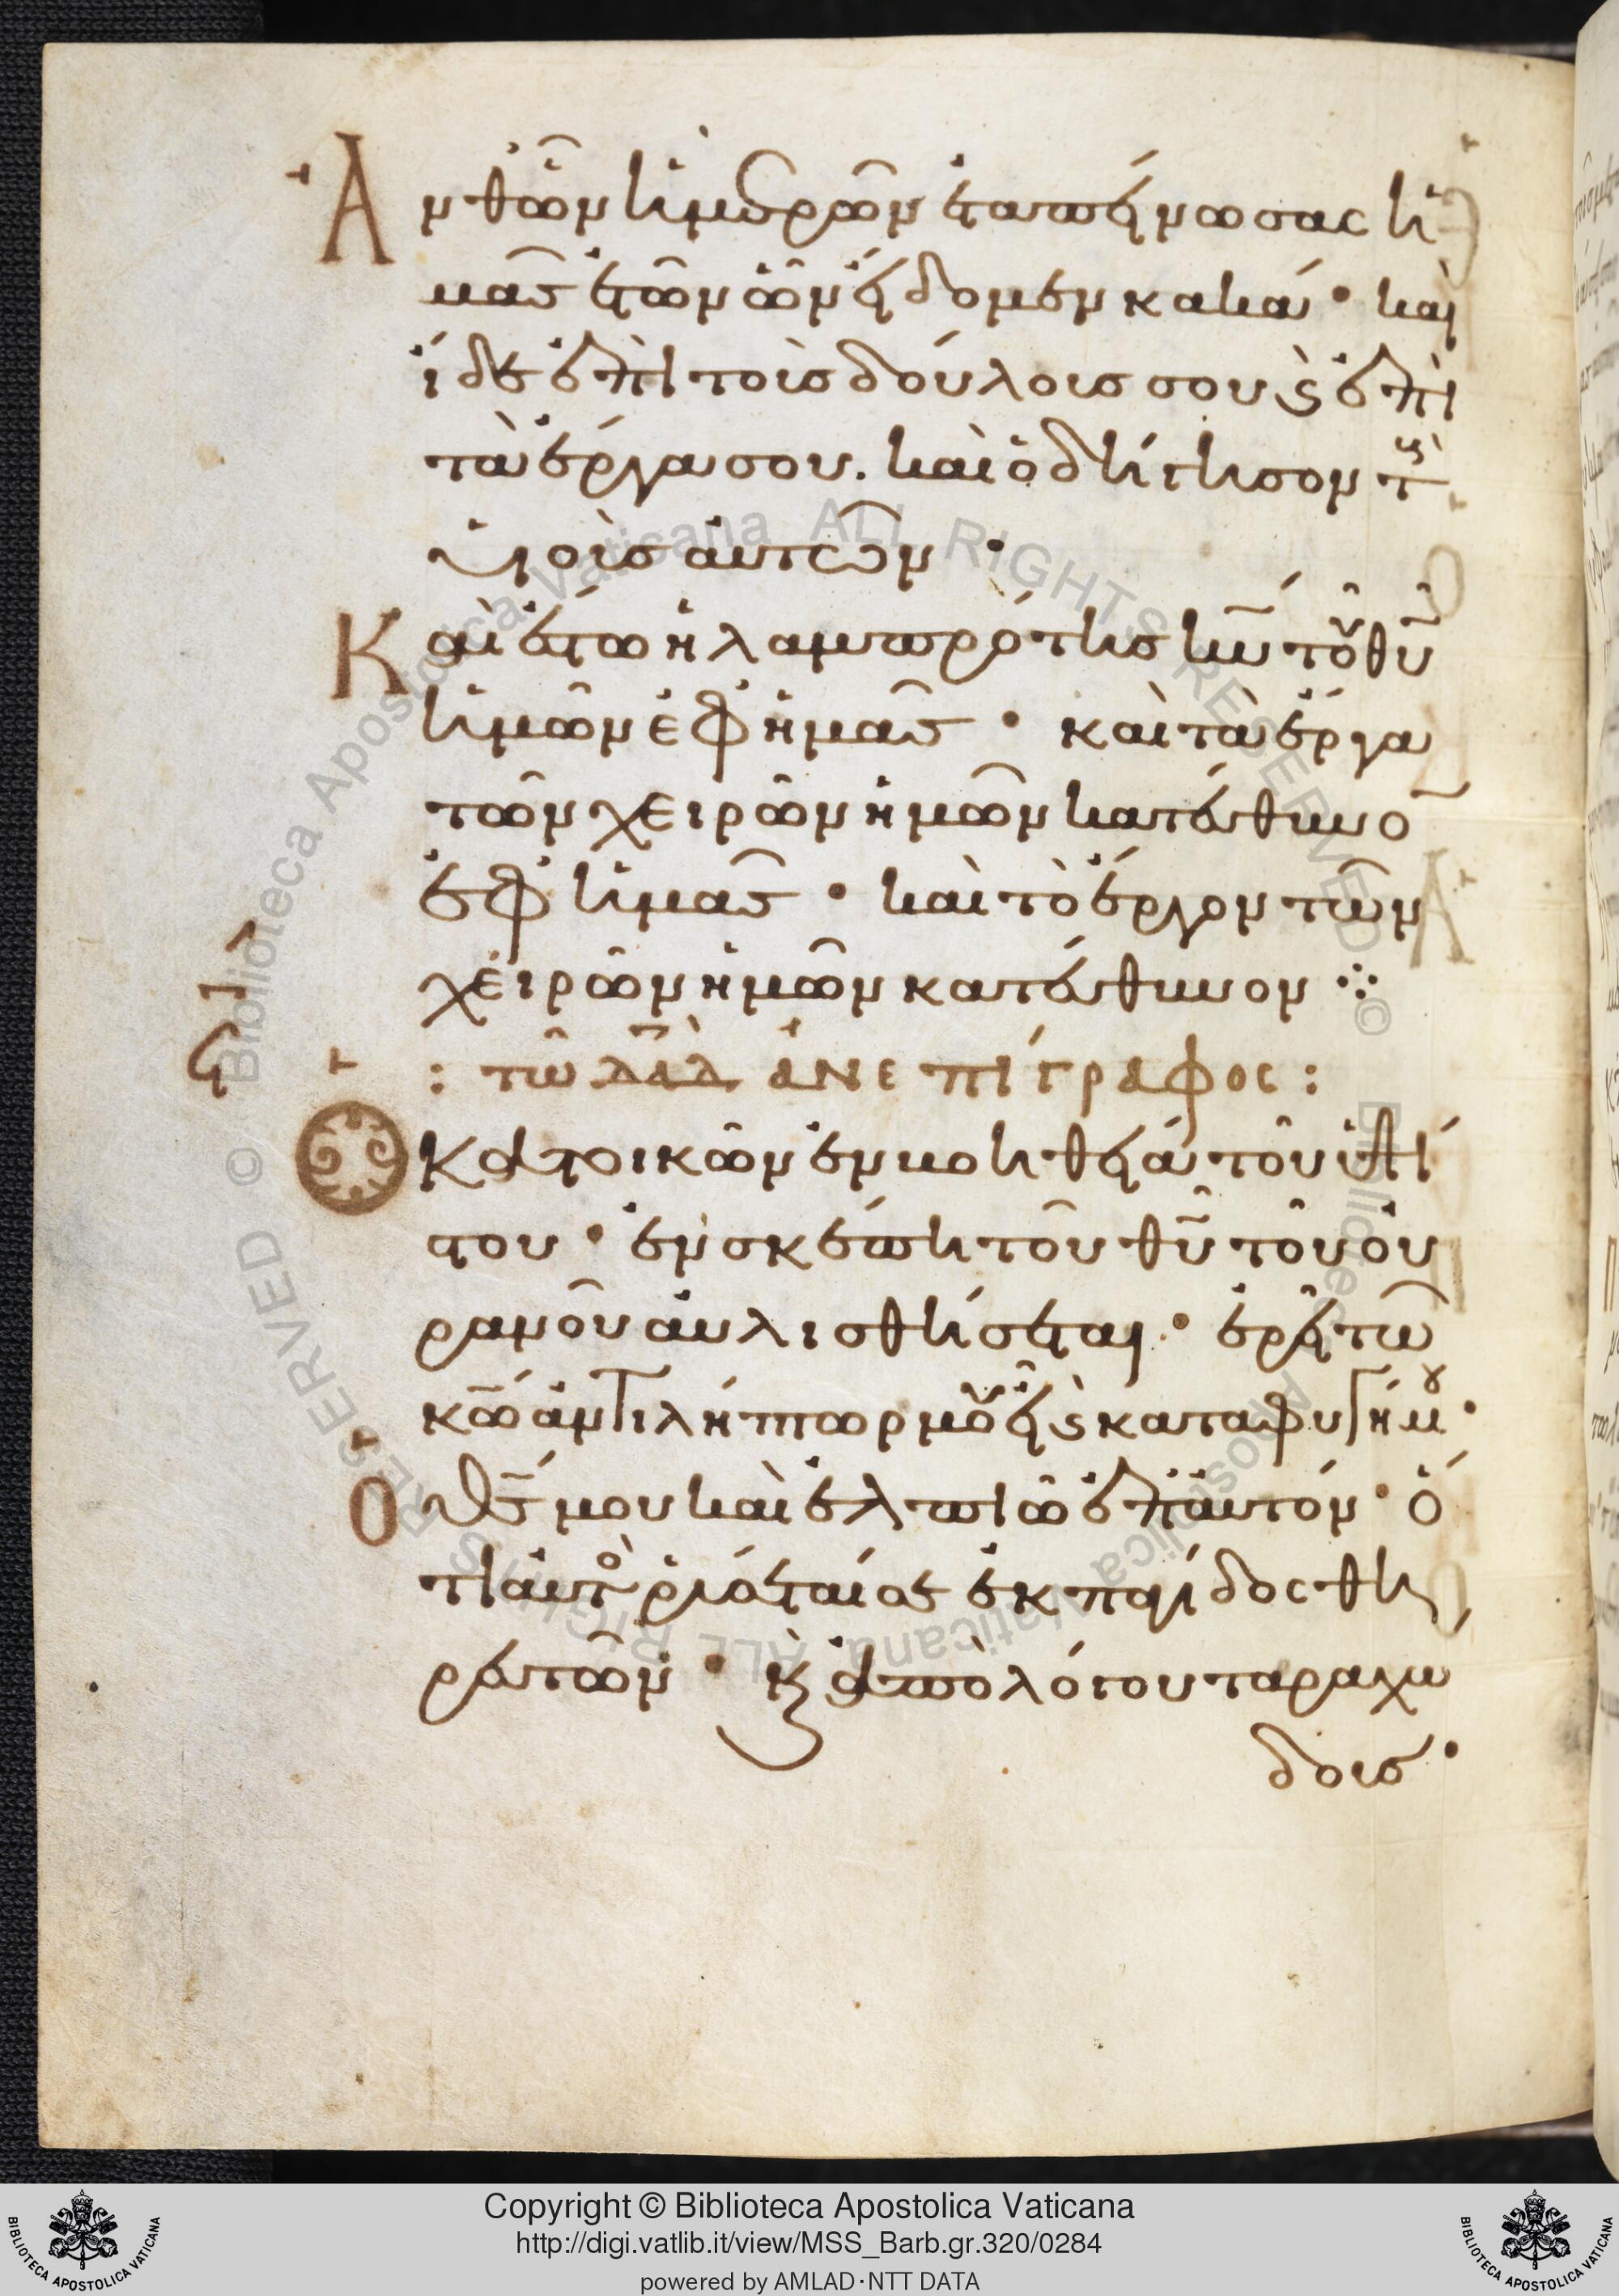 Ἀνθῶν ἡμερῶν ἐταπείνωσας ἡ
μᾶς ἐτῶν ὧν εἴδομεν κακά· καὶ
ἴδε ἐπὶ τοὺς δούλους σου ϛ ἐπὶ
τὰ ἔργα σου. καὶ ὁδήγησον τ̅
υἱοὺς αὐτῶν·
Καὶ ἔστω ἡ λαμπρότης κ̅υ̅ τοῦ θ̅υ̅
ἡμῶν ἐφ ἡμᾶς· καὶ τὰ ἔργα
τῶν χειρῶν ἡμῶν κατεύθυνο̅
ἐφ ἡμᾶς· καὶ τὸ ἔργον τῶν
χειρῶν ἡμῶν κατεύθυνον ⁘
: τῶ δ̅α̅δ̅ ἀνεπίγραφος :
Ὁ κατοικῶν ἐν βοηθείᾳ τοῦ ὑψί
στου· ἐν σκέπῃ τοῦ θ̅υ̅ τοῦ οὐ
ρανοῦ αὐλισθήσεται· ἐρεῖ τῶ
κ̅ω̅ ἀντιλήπτωρ μοῦ εἶ ϛ καταφυγή μ̅·
Ὁ θ̅ς̅ μου καὶ ἐλπιῶ ἐπ αὐτόν· ὅ
τι αὐτὸ ῥύσεταί σε ἐκ παγίδος θη
ρευτῶν· κ̀ ἀπὸ λόγου ταραχώ
δους·
Copyright © Biblioteca Apostolica Vaticana
http://digi.vatlib.it/view/MSS_Barb.gr.320/0284
powered by AMLAD·NTT DATA
BIBLIOTECA APOSTOLICA VATICANA
BIBLIOTECA APOSTOLICA VATICANA